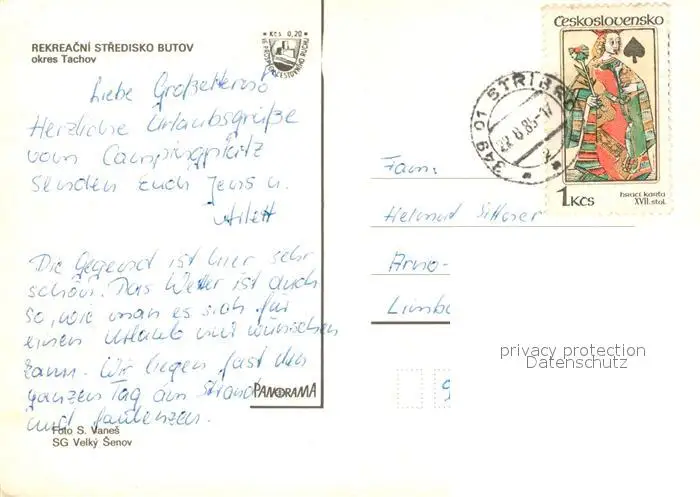 REKREAČNÍ STŘEDISKO BUTOV
okres Tachov
Kčs 0,20
Liebe Großeltern!
Herzliche Urlaubsgrüße
vom Campingplatz
senden Euch Jens u.
Die Gegend ist hier sehr
schön. Das Wetter ist auch
so, wie man es sich für
einen Urlaub nur wünschen
kann. Wir liegen fast den
ganzen Tag am Strand
und faulenzen.
Foto S. Vaneš
SG Velký Šenov
PANORAMA
Československo
1 Kčs
hrací karta
XVII. stol.
349 01 STŘÍBRO
Fam.
Helmut
Arno-
Limb
privacy protection
Datenschutz